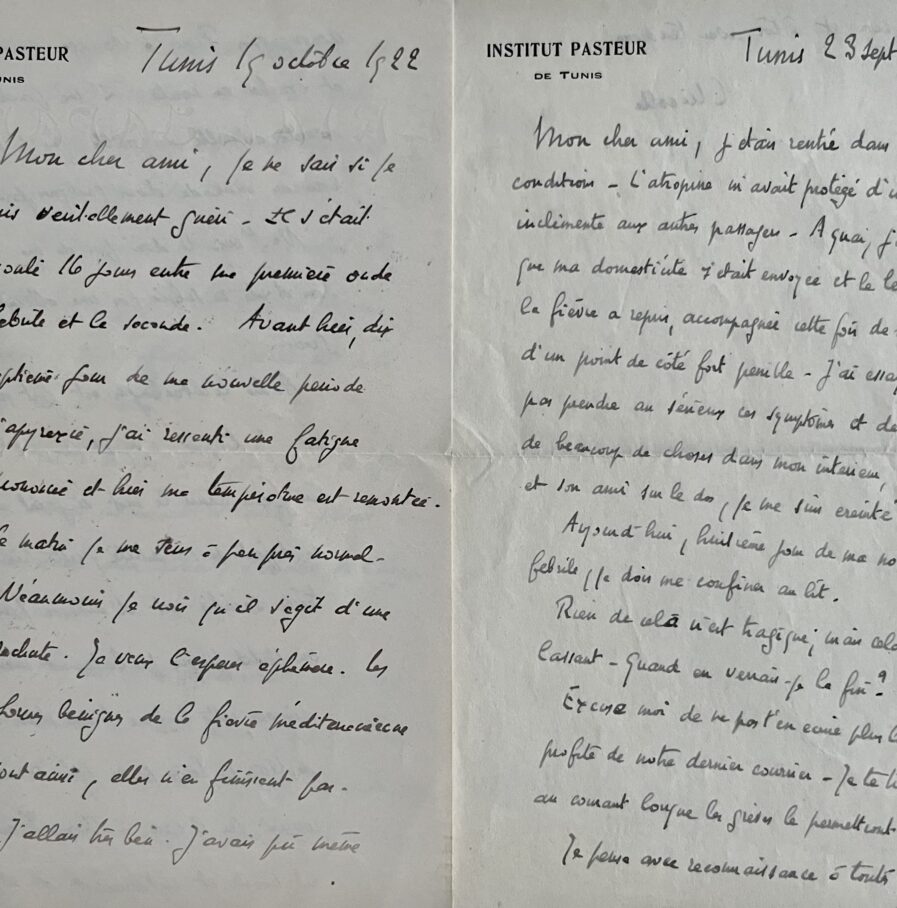 PASTEUR
NIS
Tunis 19 octobre 1922
Mon cher ami, je ne sais si je
suis réellement guéri - Il s'était
coulé 16 jours entre ma première onde
fébrile et la seconde. Avant hier, dix
ptième jour de ma nouvelle période
d'apyrexie, j'ai ressenti une fatigue
et hier ma température est remontée.
Ce matin je me sens à peu près normal-
Néanmoins je crois qu'il s'agit d'une
rechute. Je veux l'espérer éphémère. Les
formes bénignes de la fièvre méditerranéenne
sont ainsi, elles n'en finissent pas.
J'allais très bien. J'avais pu même
INSTITUT PASTEUR
DE TUNIS
Tunis 23 sept
Mon cher ami, j'étais rentré dans
conditions - L'atropine m'avait protégé d'u
inclémente aux autres passagers - A quai, j'
que ma domestique s'était envoyée et le le
la fièvre a repris, accompagnée cette fois de
d'un point de côté fort pénible - J'ai essay
pas prendre au sérieux ces symptômes et de
de beaucoup de choses dans mon intérieur,
et son ami sur le dos, je me suis éreinté
Aujourd'hui, huitième jour de ma no
fébrile, je dois me confiner au lit.
Rien de cela n'est tragique; mais cela
lassant - Quand en verrai-je la fin?
Excuse moi de ne pas t'en écrire plus l
profité de notre dernier courrier - Je te t
au courant lorsque les grèves le permettront
Je pense avec reconnaissance à toute